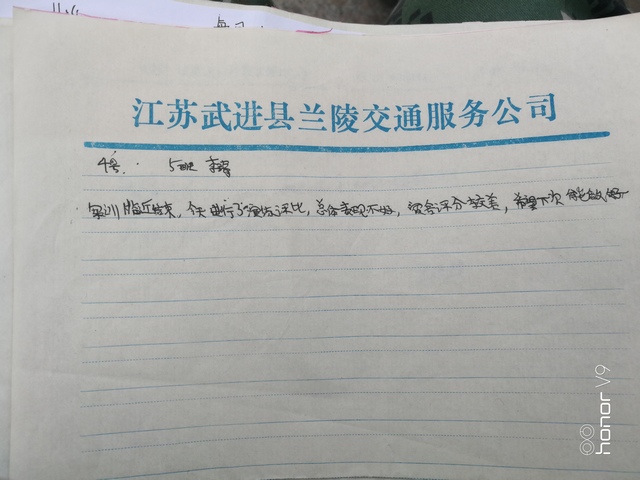 江苏武进县兰陵交通服务公司
4号. 5班
军训临近结束，今天进行了演练评比，总体表现不好，评分较差，希望下次能做好
honor V9